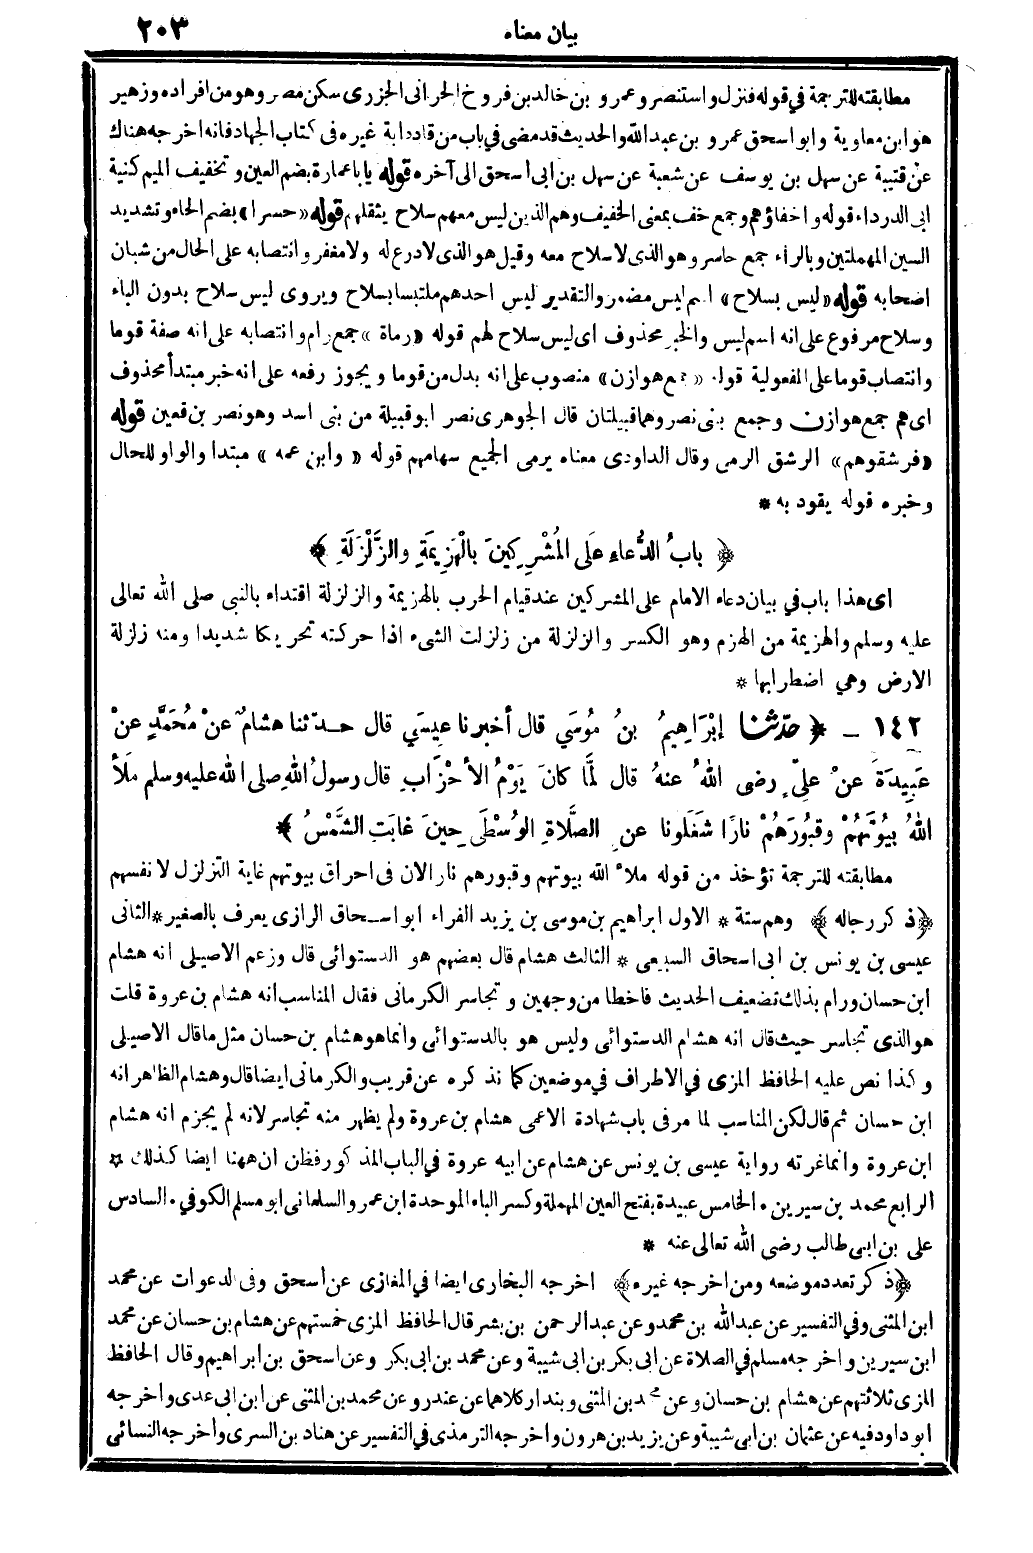 بيان معناه ٢٠٣
مطابقته للترجمة في قوله فنزل واستنصر وعمرو بن خالد بن فروخ الحراني الجزري سكن مصر وهو من افراده وزهير
هو ابن معاوية وابو اسحق عمرو بن عبد الله والحديث قد مضى في باب من قاد دابة غيره في كتاب الجهاد فانه اخرجه هناك
عن قتيبة عن سهل بن يوسف عن شعبة عن سهل بن ابي اسحق الى آخره قوله يا با عمارة بضم العين وتخفيف الميم كنية
ابي الدرداء قوله واخفاؤهم وجمع خف بمعنى الخفيف وهم الذين ليس معهم سلاح يثقلهم قوله «حسرا» بضم الحاء وتشديد
السين المهملتين وبالراء جمع حاسر وهو الذي لا سلاح معه وقيل هو الذي لا درع له ولا مغفر وانتصابه على الحال من شبان
اصحابه قوله «ليس بسلاح» اسم ليس مضمر والتقدير ليس احدهم ملتبسا بسلاح ويروى ليس سلاح بدون الباء
وسلاح مرفوع على انه اسم ليس والخبر محذوف اي ليس سلاح لهم قوله «رماة» جمع رام وانتصابه على انه صفة قوما
وانتصاب قوما على المفعولية قوله «جمع هوازن» منصوب على انه بدل من قوما ويجوز رفعه على انه خبر مبتدأ محذوف
اي هم جمع هوازن وجمع بني نصر وهما قبيلتان قال الجوهري نصر ابو قبيلة من بني اسد وهو نصر بن قعين قوله
«فرشقوهم» الرشق الرمي وقال الداودي معناه يرمي الجميع سهامهم قوله «وابن عمه» مبتدا والواو للحال
وخبره قوله يقود به *
﴿ بابُ الدُّعاءِ عَلَى المُشْرِكِينَ بالْهَزِيمَةِ والزَّلْزَلَةِ ﴾
اي هذا باب في بيان دعاء الامام على المشركين عند قيام الحرب بالهزيمة والزلزلة اقتداء بالنبي صلى الله تعالى
عليه وسلم والهزيمة من الهزم وهو الكسر والزلزلة من زلزلت الشيء اذا حركته تحريكا شديدا ومنه زلزلة
الارض وهي اضطرابها *
١٤٢ ـ ﴿ حدّثنا إبْرَاهِيمُ بنُ مُوسَى قال أخبرنا عِيسَى قال حدّثنا هشامٌ عنْ مُحَمَّدٍ عنْ
عَبِيدَةَ عنْ علِيٍّ رضى اللهُ عنهُ قال لَمَّا كانَ يَوْمُ الأحْزَابِ قال رسولُ اللهِ صلى الله عليه وسلم مَلَأ
اللهُ بيُوتَهُمْ وقبُورَهُمْ نارًا شَغَلونا عنِ الصَّلاةِ الوُسْطَى حِينَ غابَتِ الشَّمْسُ ﴾
مطابقته للترجمة تؤخذ من قوله ملأ الله بيوتهم وقبورهم نارا لان في احراق بيوتهم غاية التزلزل لانفسهم
﴿ذكر رجاله﴾ وهم ستة * الاول ابراهيم بن موسى بن يزيد الفراء ابو اسحاق الرازي يعرف بالصغير * الثاني
عيسى بن يونس بن ابي اسحاق السبيعي * الثالث هشام قال بعضهم هو الدستوائي قال وزعم الاصيلي انه هشام
ابن حسان ورام بذلك تضعيف الحديث فاخطا من وجهين وتجاسر الكرماني فقال المناسب انه هشام بن عروة قلت
هو الذي تجاسر حيث قال انه هشام الدستوائي وليس هو بالدستوائي وانما هو هشام بن حسان مثل ما قال الاصيلي
وكذا نص عليه الحافظ المزي في الاطراف في موضعين كما نذكره عن قريب والكرماني ايضا قال وهشام الظاهر انه
ابن حسان ثم قال لكن المناسب لما مر في باب شهادة الاعمى هشام بن عروة ولم يظهر منه تجاسر لانه لم يجزم انه هشام
ابن عروة وانما غرته رواية عيسى بن يونس عن هشام عن ابيه عروة في الباب المذكور فظن ان ههنا ايضا كذلك *
الرابع محمد بن سيرين . الخامس عبيدة بفتح العين المهملة وكسر الباء الموحدة ابن عمرو السلماني ابو مسلم الكوفي . السادس
علي بن ابي طالب رضى الله تعالى عنه *
﴿ذكر تعدد موضعه ومن اخرجه غيره﴾ اخرجه البخاري ايضا في المغازي عن اسحق وفي الدعوات عن محمد
ابن المثنى وفي التفسير عن عبد الله بن محمد وعن عبد الرحمن بن بشر قال الحافظ المزي خمستهم عن هشام بن حسان عن محمد
ابن سيرين واخرجه مسلم في الصلاة عن ابي بكر بن ابي شيبة وعن محمد بن ابي بكر وعن اسحق بن ابراهيم وقال الحافظ
المزي ثلاثتهم عن هشام بن حسان وعن محمد بن المثنى وبندار كلاهما عن غندر وعن محمد بن المثنى عن ابن ابي عدى واخرجه
ابو داود فيه عن عثمان بن ابي شيبة وعن يزيد بن هرون واخرجه الترمذي في التفسير عن هناد بن السرى واخرجه النسائي